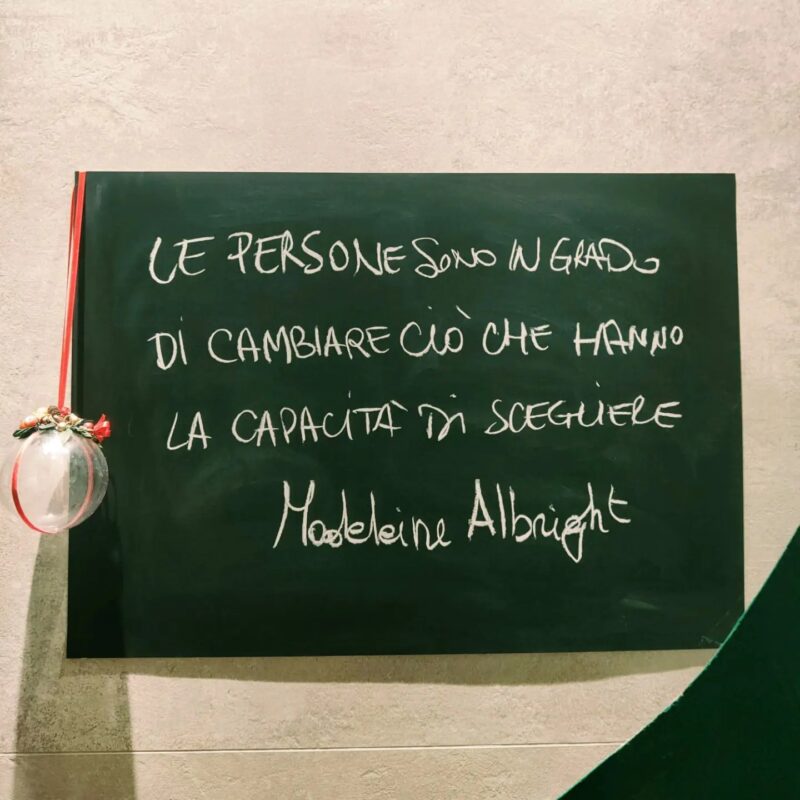 LE PERSONE SONO IN GRADO
DI CAMBIARE CIÒ CHE HANNO
LA CAPACITÀ DI SCEGLIERE
Madeleine Albright